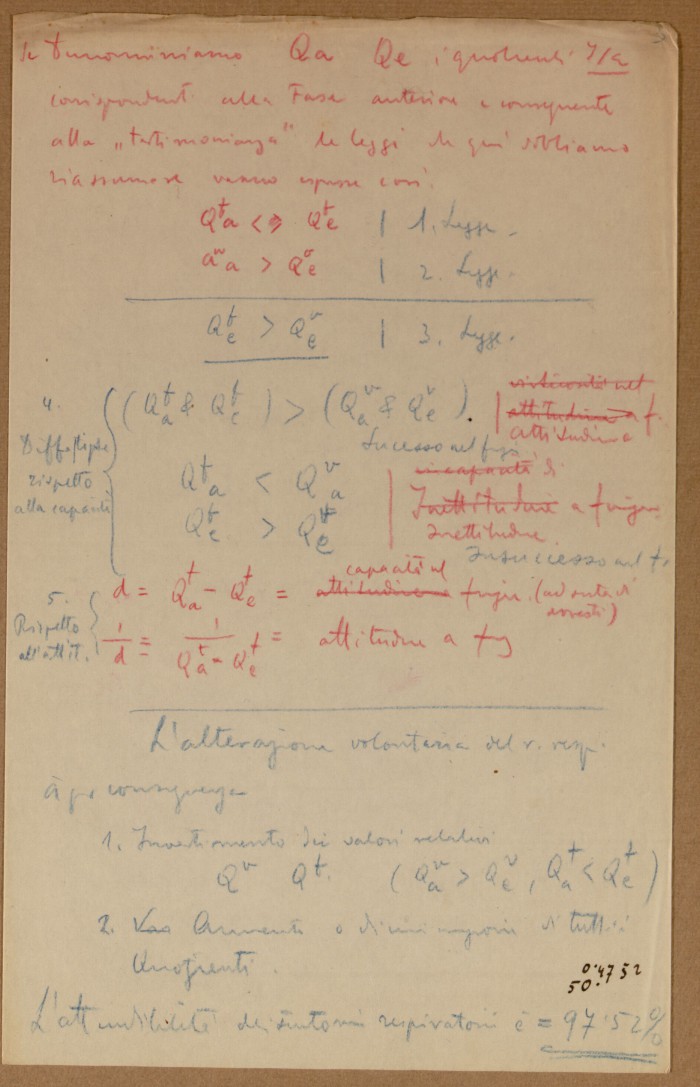 Se Denominiamo Qa Qe i quozienti I/E
corrispondenti alla Fase anteriore e conseguente
alla „testimonianza" le leggi che qui dobbiamo
riassumere vanno espresse così.
Qᵗa < Qᵗe | 1. Legge.
Qᵛa > Qᵛe | 2. Legge.
Qᵗe > Qᵛe | 3. Legge.
4. (Qᵗa & Qᵗe) > (Qᵛa & Qᵛe).
attitudine a f.
attitudine
Successo nel fing
rispetto
alla capacità
Qᵗa < Qᵛa
Qᵗe > Qᵛe
incapacità di
Inettitudine a fingere
Inettitudine
Insuccesso nel f.
5. Rispetto
all'attit.
d = Qᵗa - Qᵗe = attitudine a capacità al fingere. (ad onta di
arresti)
1/d = 1/Qᵗa - Qᵗe = attitudine a fing
L'alterazione volontaria del r. resp.
à per conseguenza
1. Invertimento dei valori relativi
Qᵛ Qᵗ. (Qᵛa > Qᵛe, Qᵗa < Qᵗe)
2. Aumenti o diminuzioni di tutti i
Quozienti.
0.4752
50.
L'attendibilità dei sintomi respiratori è = 97.52%